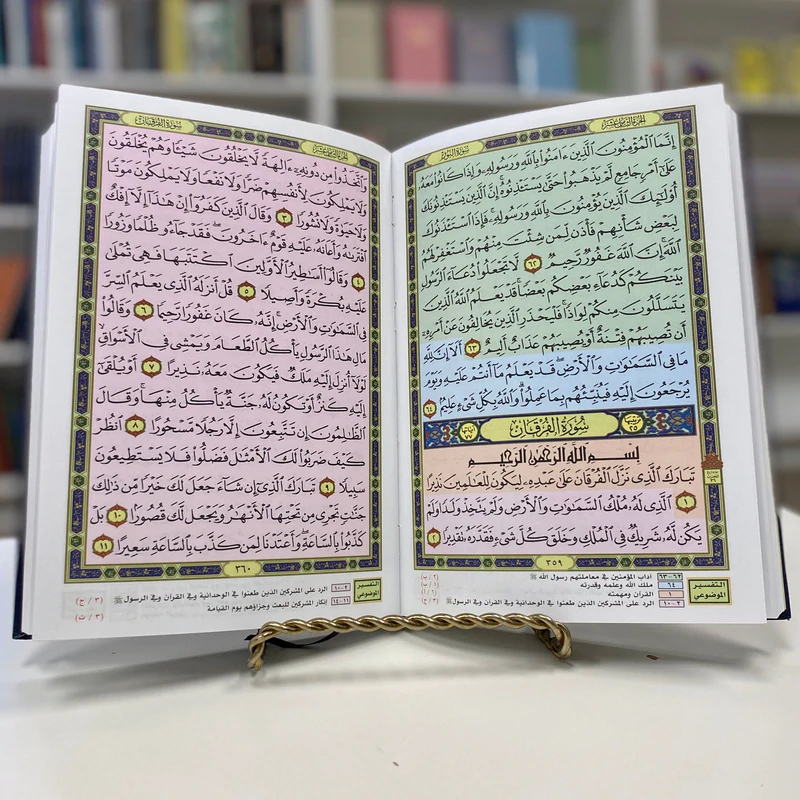 الجزء الثامن عشر
سورة النور
إِنَّمَا ٱلْمُؤْمِنُونَ ٱلَّذِينَ ءَامَنُوا۟ بِٱللَّهِ وَرَسُولِهِۦ وَإِذَا كَانُوا۟ مَعَهُۥ
عَلَىٰٓ أَمْرٍ جَامِعٍ لَّمْ يَذْهَبُوا۟ حَتَّىٰ يَسْتَـْٔذِنُوهُ إِنَّ ٱلَّذِينَ يَسْتَـْٔذِنُونَكَ
أُو۟لَـٰٓئِكَ ٱلَّذِينَ يُؤْمِنُونَ بِٱللَّهِ وَرَسُولِهِۦ فَإِذَا ٱسْتَـْٔذَنُوكَ
لِبَعْضِ شَأْنِهِمْ فَأْذَن لِّمَن شِئْتَ مِنْهُمْ وَٱسْتَغْفِرْ لَهُمُ
ٱللَّهَ إِنَّ ٱللَّهَ غَفُورٌ رَّحِيمٌ ٦٢ لَّا تَجْعَلُوا۟ دُعَآءَ ٱلرَّسُولِ
بَيْنَكُمْ كَدُعَآءِ بَعْضِكُم بَعْضًا قَدْ يَعْلَمُ ٱللَّهُ ٱلَّذِينَ
يَتَسَلَّلُونَ مِنكُمْ لِوَاذًا فَلْيَحْذَرِ ٱلَّذِينَ يُخَالِفُونَ عَنْ أَمْرِهِۦٓ
أَن تُصِيبَهُمْ فِتْنَةٌ أَوْ يُصِيبَهُمْ عَذَابٌ أَلِيمٌ ٦٣ أَلَآ إِنَّ لِلَّهِ
مَا فِى ٱلسَّمَـٰوَٰتِ وَٱلْأَرْضِ قَدْ يَعْلَمُ مَآ أَنتُمْ عَلَيْهِ وَيَوْمَ
يُرْجَعُونَ إِلَيْهِ فَيُنَبِّئُهُم بِمَا عَمِلُوا۟ وَٱللَّهُ بِكُلِّ شَىْءٍ عَلِيمٌۢ ٦٤
ترتيبها ٢٥ سُورَةُ الْفُرْقَانِ آياتها ٧٧
بِسْمِ ٱللَّهِ ٱلرَّحْمَـٰنِ ٱلرَّحِيمِ
تَبَارَكَ ٱلَّذِى نَزَّلَ ٱلْفُرْقَانَ عَلَىٰ عَبْدِهِۦ لِيَكُونَ لِلْعَـٰلَمِينَ نَذِيرًا
١ ٱلَّذِى لَهُۥ مُلْكُ ٱلسَّمَـٰوَٰتِ وَٱلْأَرْضِ وَلَمْ يَتَّخِذْ وَلَدًا وَلَمْ
يَكُن لَّهُۥ شَرِيكٌ فِى ٱلْمُلْكِ وَخَلَقَ كُلَّ شَىْءٍ فَقَدَّرَهُۥ تَقْدِيرًا ٢
٣٥٩
التفسير الموضوعي
٦٢-٦٣ آداب المؤمنين في معاملتهم رسول الله ﷺ
٦٤ ملك الله وعلمه وقدرته
١ القرآن ومهمته
٢-١٠ الرد على المشركين الذين طعنوا في الوحدانية وفي القرآن وفي الرسول ﷺ
الجزء الثامن عشر
سورة الفرقان
وَٱتَّخَذُوا۟ مِن دُونِهِۦٓ ءَالِهَةً لَّا يَخْلُقُونَ شَيْـًٔا وَهُمْ يُخْلَقُونَ
وَلَا يَمْلِكُونَ لِأَنفُسِهِمْ ضَرًّا وَلَا نَفْعًا وَلَا يَمْلِكُونَ مَوْتًا
وَلَا حَيَوٰةً وَلَا نُشُورًا ٣ وَقَالَ ٱلَّذِينَ كَفَرُوٓا۟ إِنْ هَـٰذَآ إِلَّآ إِفْكٌ
ٱفْتَرَىٰهُ وَأَعَانَهُۥ عَلَيْهِ قَوْمٌ ءَاخَرُونَ فَقَدْ جَآءُو ظُلْمًا وَزُورًا
٤ وَقَالُوٓا۟ أَسَـٰطِيرُ ٱلْأَوَّلِينَ ٱكْتَتَبَهَا فَهِىَ تُمْلَىٰ
عَلَيْهِ بُكْرَةً وَأَصِيلًا ٥ قُلْ أَنزَلَهُ ٱلَّذِى يَعْلَمُ ٱلسِّرَّ
فِى ٱلسَّمَـٰوَٰتِ وَٱلْأَرْضِ إِنَّهُۥ كَانَ غَفُورًا رَّحِيمًا ٦ وَقَالُوا۟
مَالِ هَـٰذَا ٱلرَّسُولِ يَأْكُلُ ٱلطَّعَامَ وَيَمْشِى فِى ٱلْأَسْوَاقِ
لَوْلَآ أُنزِلَ إِلَيْهِ مَلَكٌ فَيَكُونَ مَعَهُۥ نَذِيرًا ٧ أَوْ يُلْقَىٰٓ
إِلَيْهِ كَنزٌ أَوْ تَكُونُ لَهُۥ جَنَّةٌ يَأْكُلُ مِنْهَا وَقَالَ
ٱلظَّـٰلِمُونَ إِن تَتَّبِعُونَ إِلَّا رَجُلًا مَّسْحُورًا ٨ ٱنظُرْ
كَيْفَ ضَرَبُوا۟ لَكَ ٱلْأَمْثَـٰلَ فَضَلُّوا۟ فَلَا يَسْتَطِيعُونَ
سَبِيلًا ٩ تَبَارَكَ ٱلَّذِىٓ إِن شَآءَ جَعَلَ لَكَ خَيْرًا مِّن ذَٰلِكَ
جَنَّـٰتٍ تَجْرِى مِن تَحْتِهَا ٱلْأَنْهَـٰرُ وَيَجْعَل لَّكَ قُصُورًۢا ١٠ بَلْ
كَذَّبُوا۟ بِٱلسَّاعَةِ وَأَعْتَدْنَا لِمَن كَذَّبَ بِٱلسَّاعَةِ سَعِيرًا ١١
٣٦٠
التفسير الموضوعي
٢-١٠ الرد على المشركين الذين طعنوا في الوحدانية وفي القرآن وفي الرسول ﷺ
١١-١٤ إنكار المشركين للبعث وجزاؤهم يوم القيامة